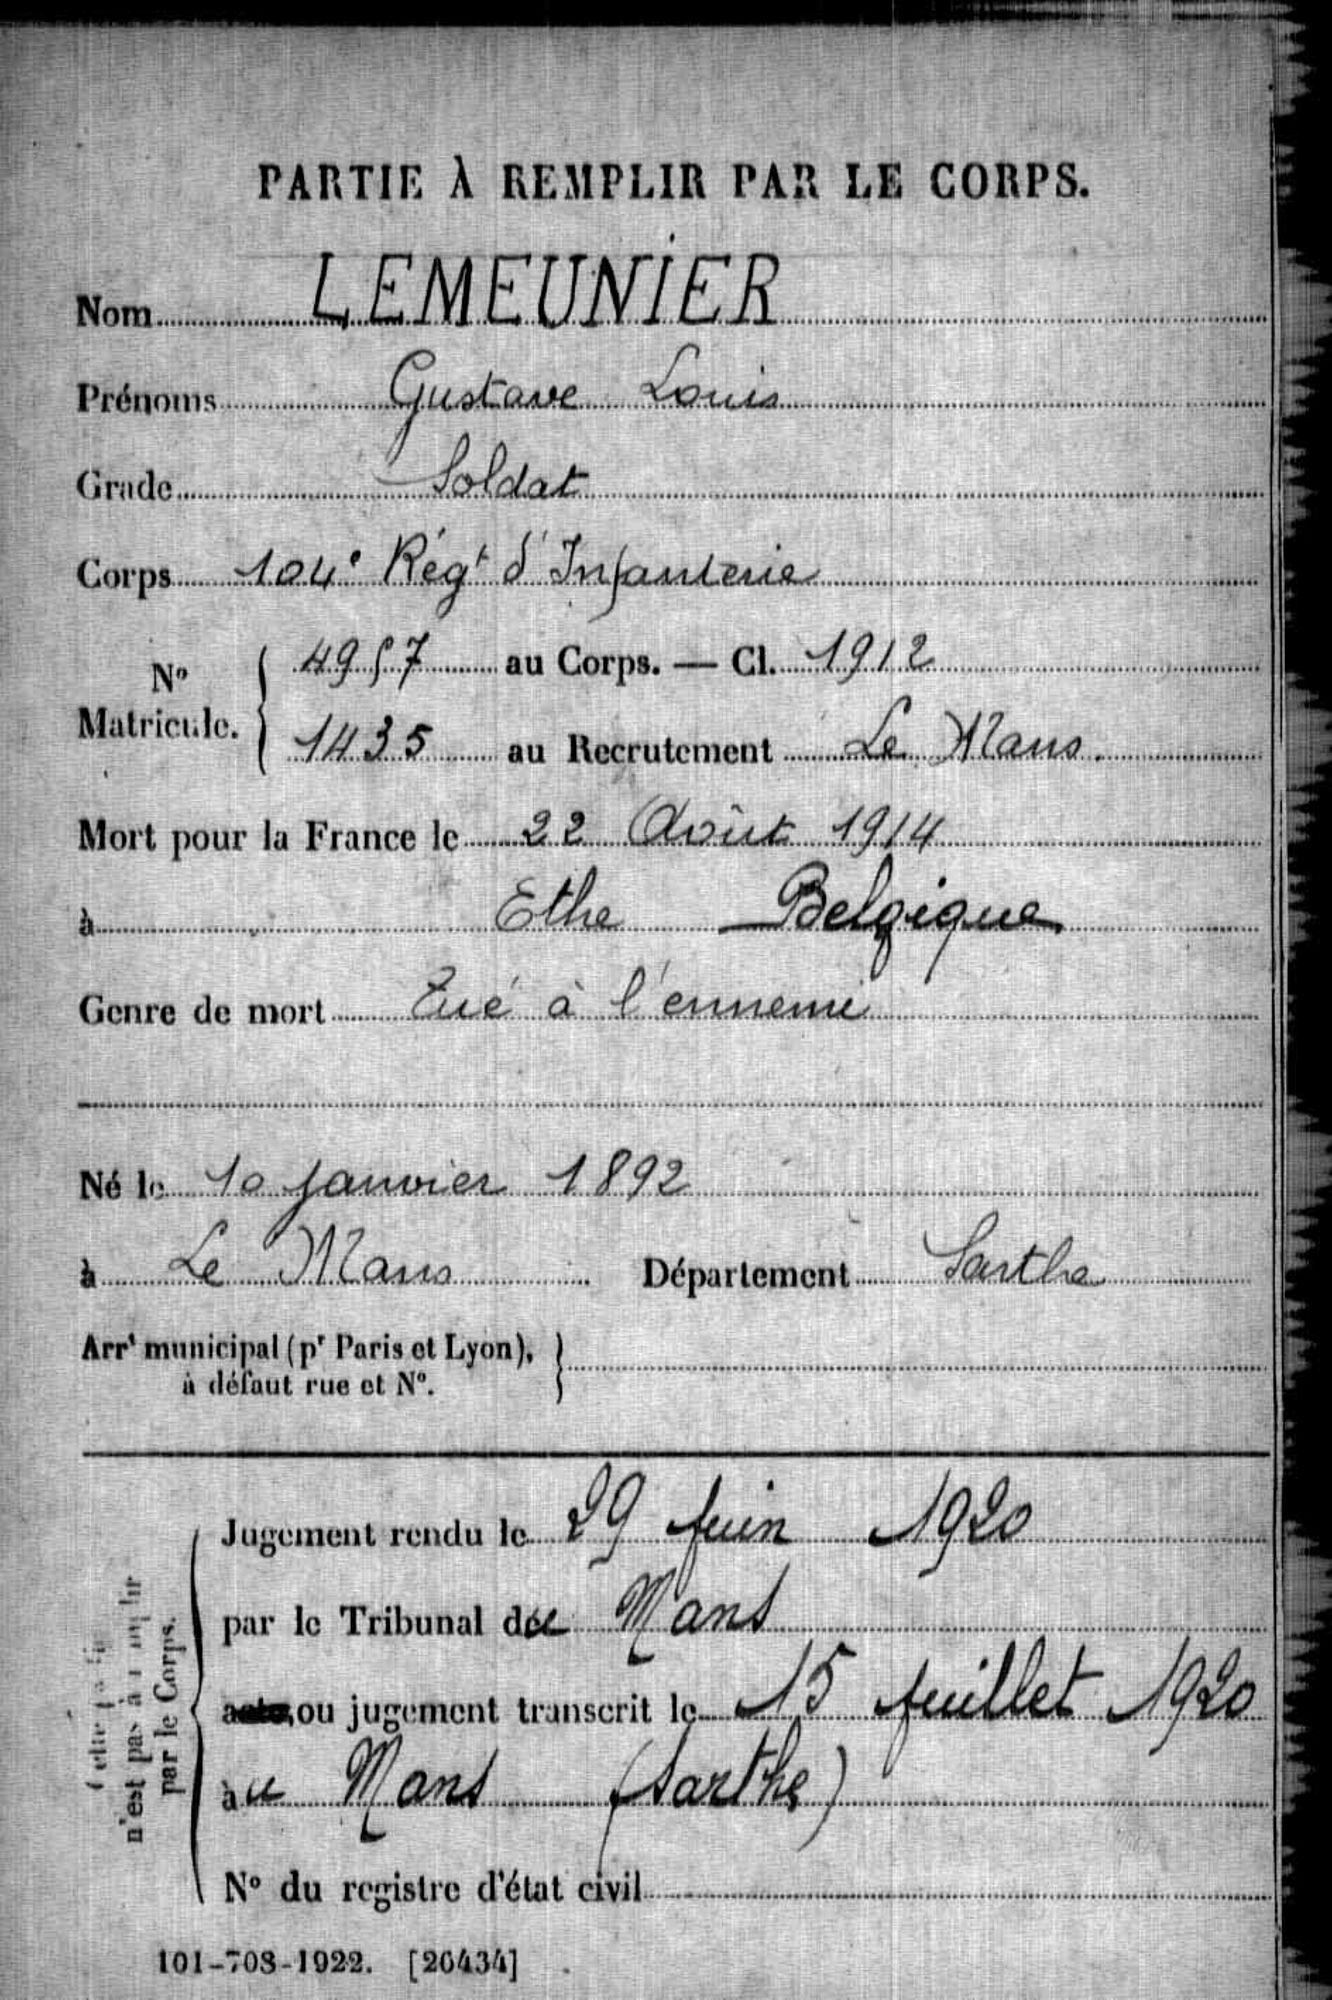 PARTIE À REMPLIR PAR LE CORPS.
Nom LEMEUNIER
Prénoms Gustave Louis
Grade Soldat
Corps 104e Régt d'Infanterie
No Matricule. { 4957 au Corps. — Cl. 1912
1435 au Recrutement Le Mans
Mort pour la France le 22 Août 1914
à Ethe Belgique
Genre de mort Tué à l'ennemi
Né le 10 Janvier 1892
à Le Mans Département Sarthe
Arrt municipal (pr Paris et Lyon), }
à défaut rue et No.
Jugement rendu le 29 Juin 1920
par le Tribunal du Mans
acte ou jugement transcrit le 15 Juillet 1920
au Mans (Sarthe)
No du registre d'état civil
Cette partie
n'est pas à remplir
par le Corps.
101-708-1922. [26434]